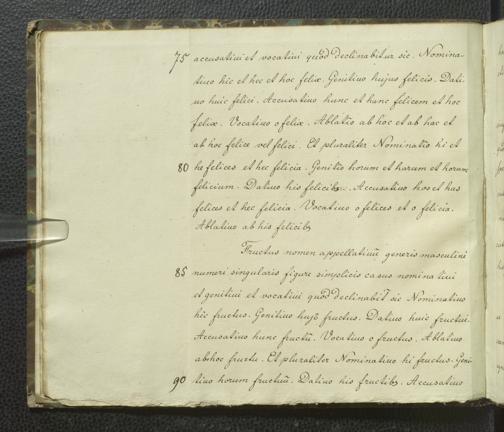 75 accusatiui et vocatiui quod declinabitur sic. Nomina-
tiuo hic et hec et hoc felix. Genitiuo hujus felicis. Dati-
uo huic felici. Accusatiuo hunc et hanc felicem et hoc
felix. Vocatiuo o felix. Ablatio ab hoc et ab hac et
ab hoc felice vel felici. Et pluraliter Nominatio hi et
80 he felices et hec felicia. Genitio horum et harum et horum
felicium. Datiuo his felicibȝ. Accusatiuo hos et has
felices et hec felicia. Vocatiuo o felices et o felicia.
Ablatiuo ab his felicibȝ
Fructus nomen appellatiuũ generis masculini
85 numeri singularis figure simplicis casus nominatiui
et genitiui et vocatiui quod declinabit̃ sic Nominatiuo
hic fructus. Genitiuo hujȝ fructus. Datiuo huic fructui.
Accusatiuo hunc fructũ. Vocatiuo o fructus. Ablatiuo
abhoc fructu. Et pluraliter Nominatiuo hi fructus. Geni-
90 tiuo horum fructuũ. Datiuo his fructibȝ. Accusatiuo